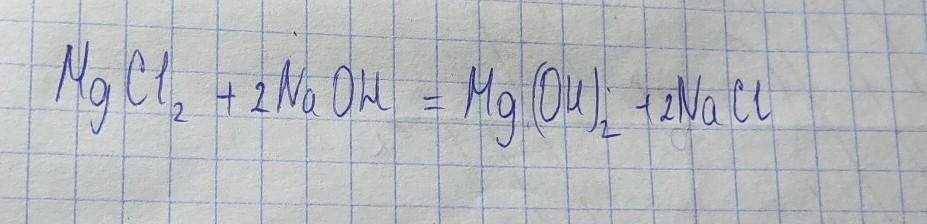 MgCl₂ + 2NaOH = Mg(OH)₂ + 2NaCl